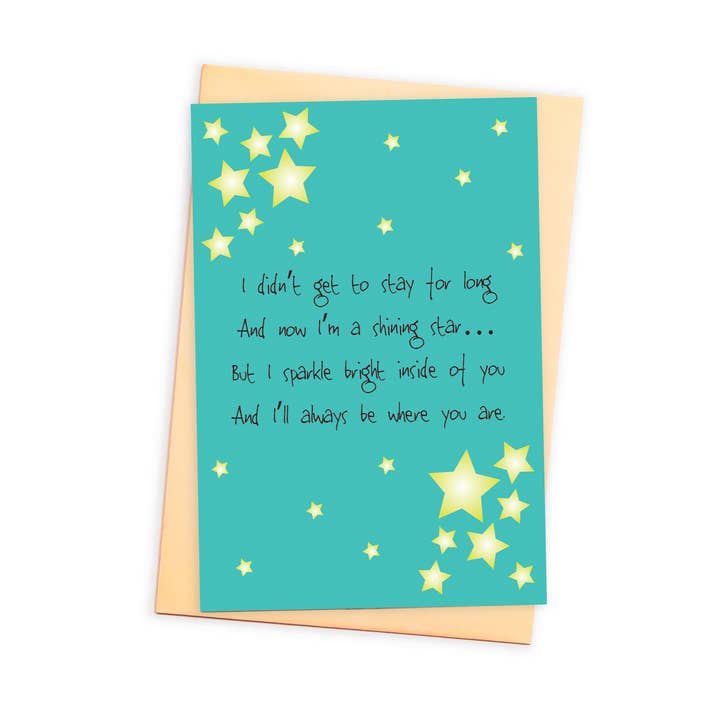 I didn't get to stay for long
And now I'm a shining star...
But I sparkle bright inside of you
And I'll always be where you are.